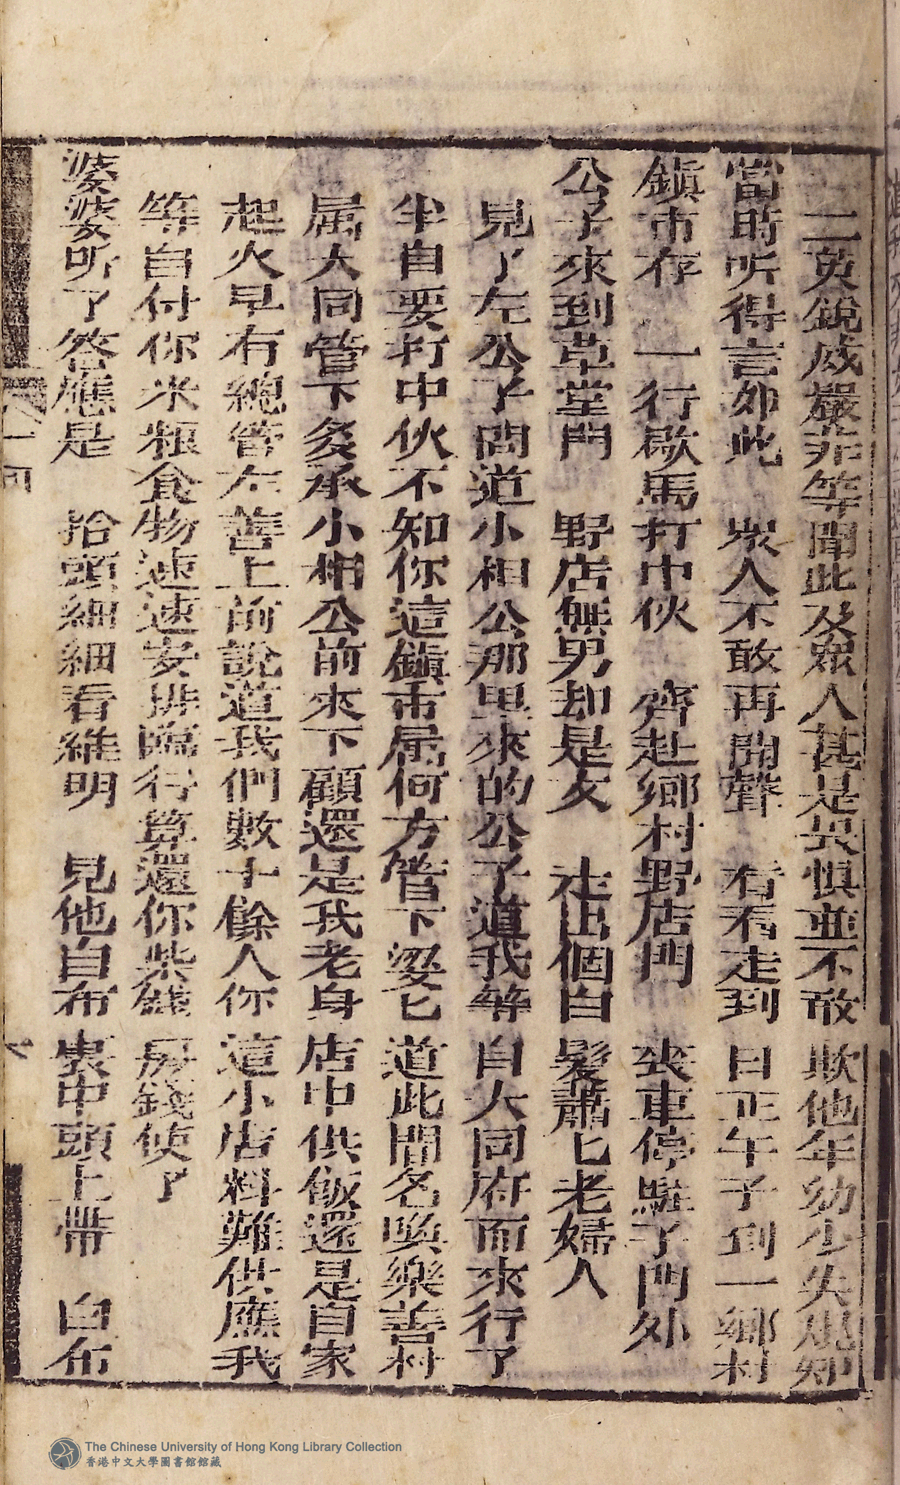 二英銳威嚴非等聞此及眾人甚是畏惧並不敢欺他年幼少失規矩
當時听得言如此　眾人不敢再開聲　看看走到日正午　子到一鄉村
鎮市存　一行歇馬打中伙　齊赴鄉村野店門　喪車停駐子門外
公子來到草堂門　野店無男却是女　走出個白髮蕭匕老婦人
見了左公子問道小相公那里來的公子道我等自大同府而來行了
半自要打中伙不知你這鎮市属何方管下婆匕道此間名喚樂善村
属大同管下多承小相公前來下顧還是我老身店中供飯還是自家
起火早有總管左善上前說道我們數十餘人你這小店料難供應我
等自付你米粮食物速速安排臨行算還你柴錢房錢使了
婆婆听了答應是　抬頭細細看維明　見他白布喪巾頭上帶　白布
一回
The Chinese University of Hong Kong Library Collection
香港中文大學圖書館館藏